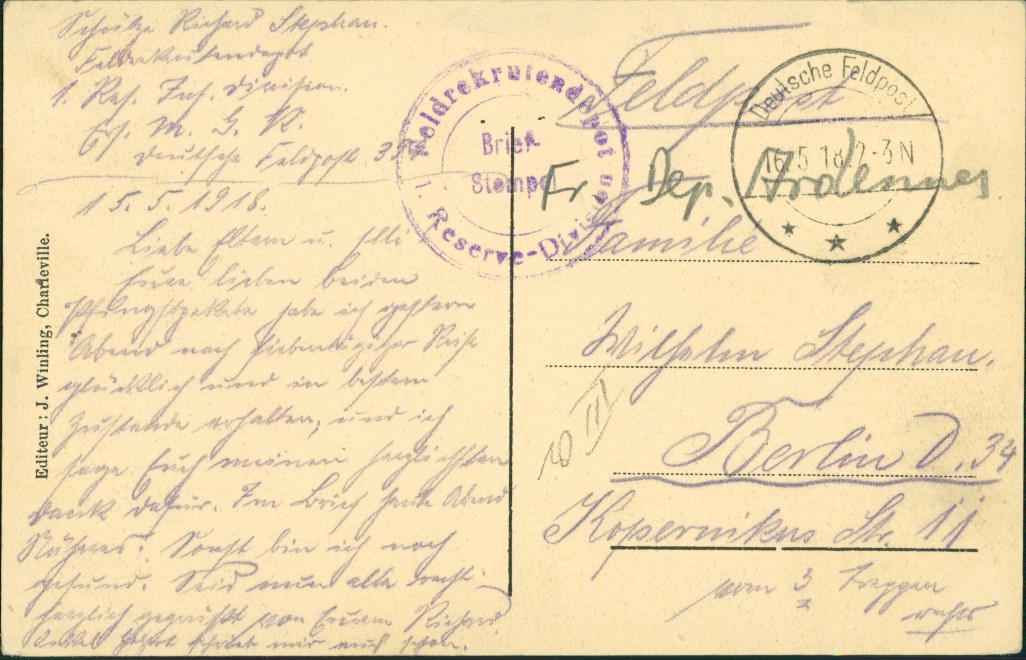 Schütze Richard Stephan.
Feldrekrutendepot
1. Res. Inf. Division.
Ers. M. G. K.
Deutsche Feldpost 32
15.5.1918.
Liebe Eltern u. Elli
Eure lieben beiden
Pfingstpakete habe ich gestern
Abend nach siebentägiger Reise
glücklich und in bestem
Zustande erhalten, und ich
sage Euch meinen herzlichsten
Dank dafür. Im Brief heute Abend
Näheres. Sonst bin ich noch
gesund. Seid nun alle recht
herzlich gegrüßt von Eurem Richard
Onkel schrieb mir auch schon.
Editeur : J. Winling, Charleville.
Feldrekrutendepot
1. Reserve-Division
Brief-
Stempel
Feldpost
Deutsche Feldpost
16.5.18 2-3N
Fr Dep. Ardennes
Familie
Wilhelm Stephan.
Berlin O. 34
Kopernikus Str. 11
vorn 3 Treppen
rechts
10 III